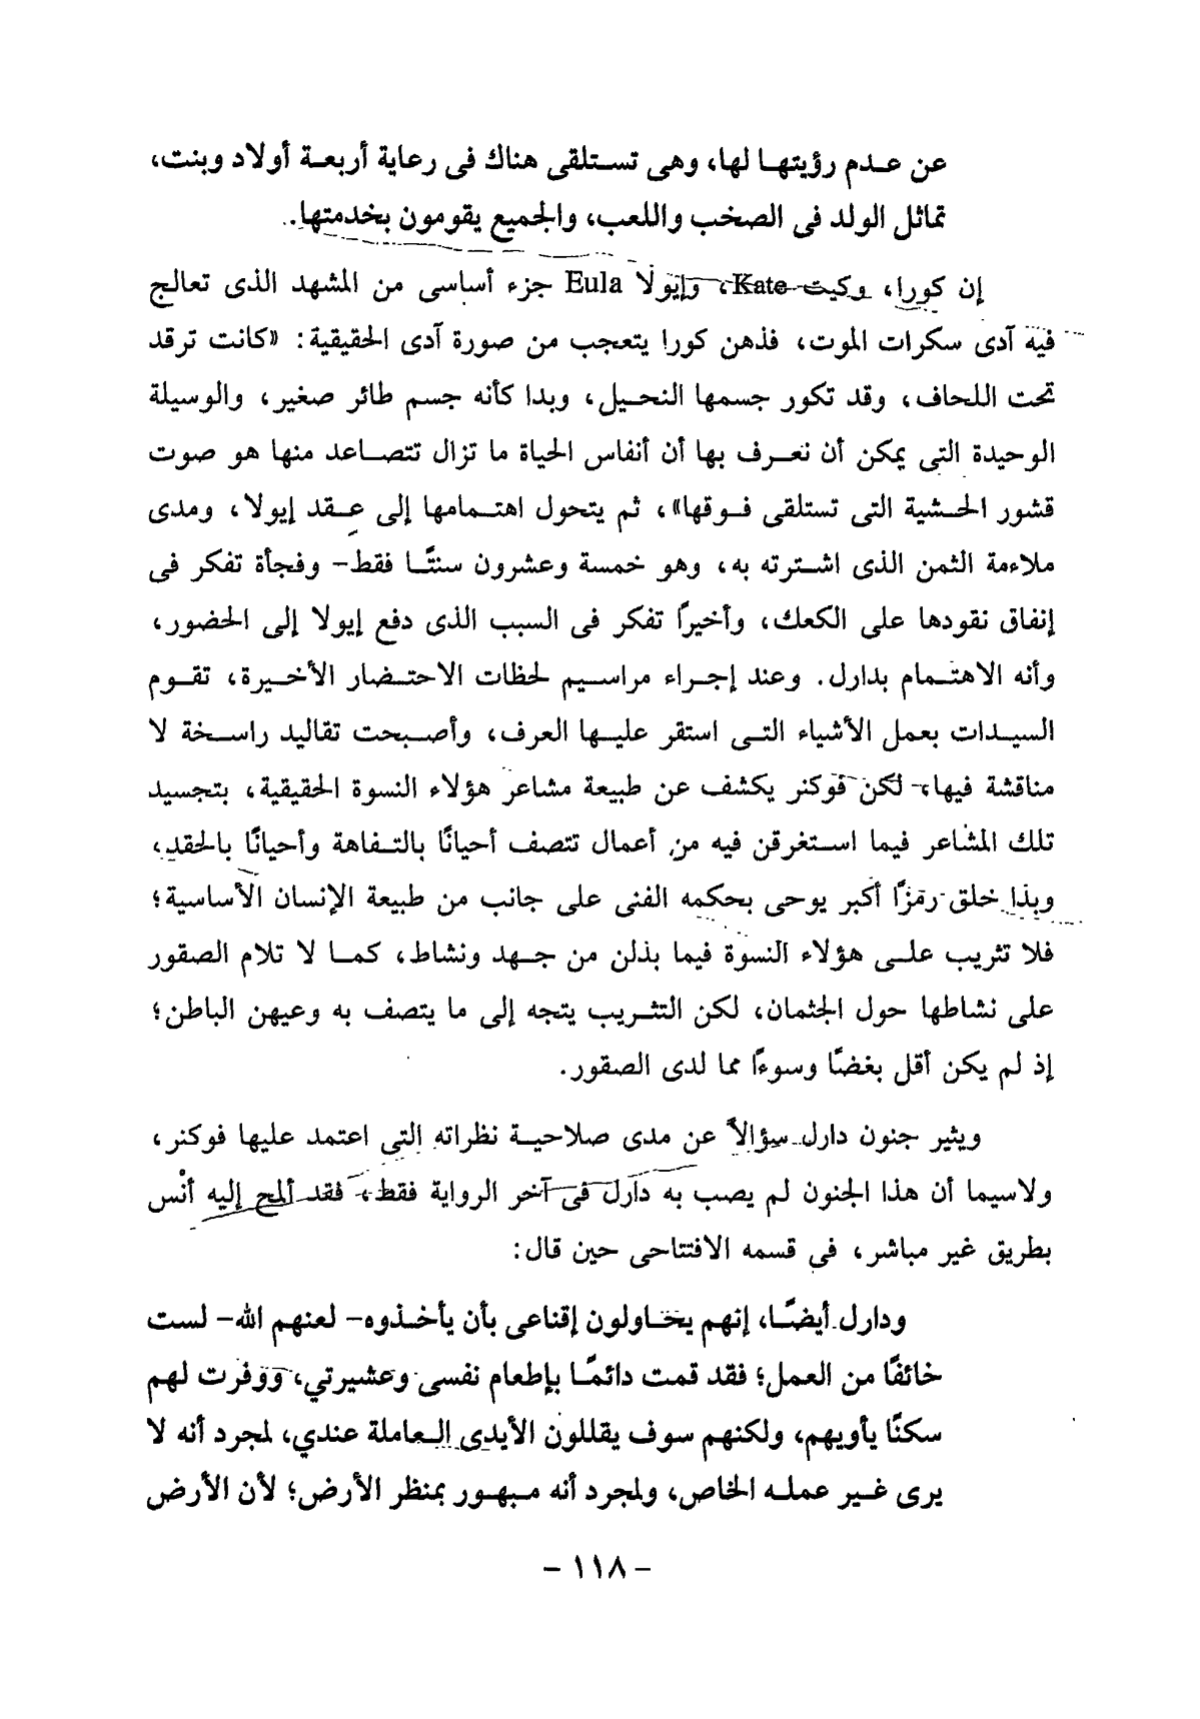 عن عدم رؤيتها لها، وهى تستلقى هناك فى رعاية أربعة أولاد وبنت،
تماثل الولد فى الصخب واللعب، والجميع يقومون بخدمتها.
إن كورا، وكيت Kate، وإيولا Eula جزء أساسى من المشهد الذى تعالج
فيه آدى سكرات الموت، فذهن كورا يتعجب من صورة آدى الحقيقية: «كانت ترقد
تحت اللحاف، وقد تكور جسمها النحيل، وبدا كأنه جسم طائر صغير، والوسيلة
الوحيدة التى يمكن أن نعرف بها أن أنفاس الحياة ما تزال تتصاعد منها هو صوت
قشور الحشية التى تستلقى فوقها»، ثم يتحول اهتمامها إلى عقد إيولا، ومدى
ملاءمة الثمن الذى اشترته به، وهو خمسة وعشرون سنتًا فقط- وفجأة تفكر فى
إنفاق نقودها على الكعك، وأخيرًا تفكر فى السبب الذى دفع إيولا إلى الحضور،
وأنه الاهتمام بدارل. وعند إجراء مراسيم لحظات الاحتضار الأخيرة، تقوم
السيدات بعمل الأشياء التى استقر عليها العرف، وأصبحت تقاليد راسخة لا
مناقشة فيها، لكن فوكنر يكشف عن طبيعة مشاعر هؤلاء النسوة الحقيقية، بتجسيد
تلك المشاعر فيما استغرقن فيه من أعمال تتصف أحيانًا بالتفاهة وأحيانًا بالحقد،
وبذا خلق رمزًا أكبر يوحى بحكمه الفنى على جانب من طبيعة الإنسان الأساسية؛
فلا تثريب على هؤلاء النسوة فيما بذلن من جهد ونشاط، كما لا تلام الصقور
على نشاطها حول الجثمان، لكن التثريب يتجه إلى ما يتصف به وعيهن الباطن؛
إذ لم يكن أقل بغضًا وسوءًا مما لدى الصقور.
ويثير جنون دارل سؤالاً عن مدى صلاحية نظراته التى اعتمد عليها فوكنر،
ولاسيما أن هذا الجنون لم يصب به دارل فى آخر الرواية فقط، فقد ألمح إليه أنْس
بطريق غير مباشر، فى قسمه الافتتاحى حين قال:
ودارل أيضًا، إنهم يحاولون إقناعى بأن يأخذوه- لعنهم الله- لست
خائفًا من العمل؛ فقد قمت دائمًا بإطعام نفسى وعشيرتي، ووفرت لهم
سكنًا يأويهم، ولكنهم سوف يقللون الأيدى العاملة عندي، لمجرد أنه لا
يرى غير عمله الخاص، ولمجرد أنه مبهور بمنظر الأرض؛ لأن الأرض
- ١١٨ -